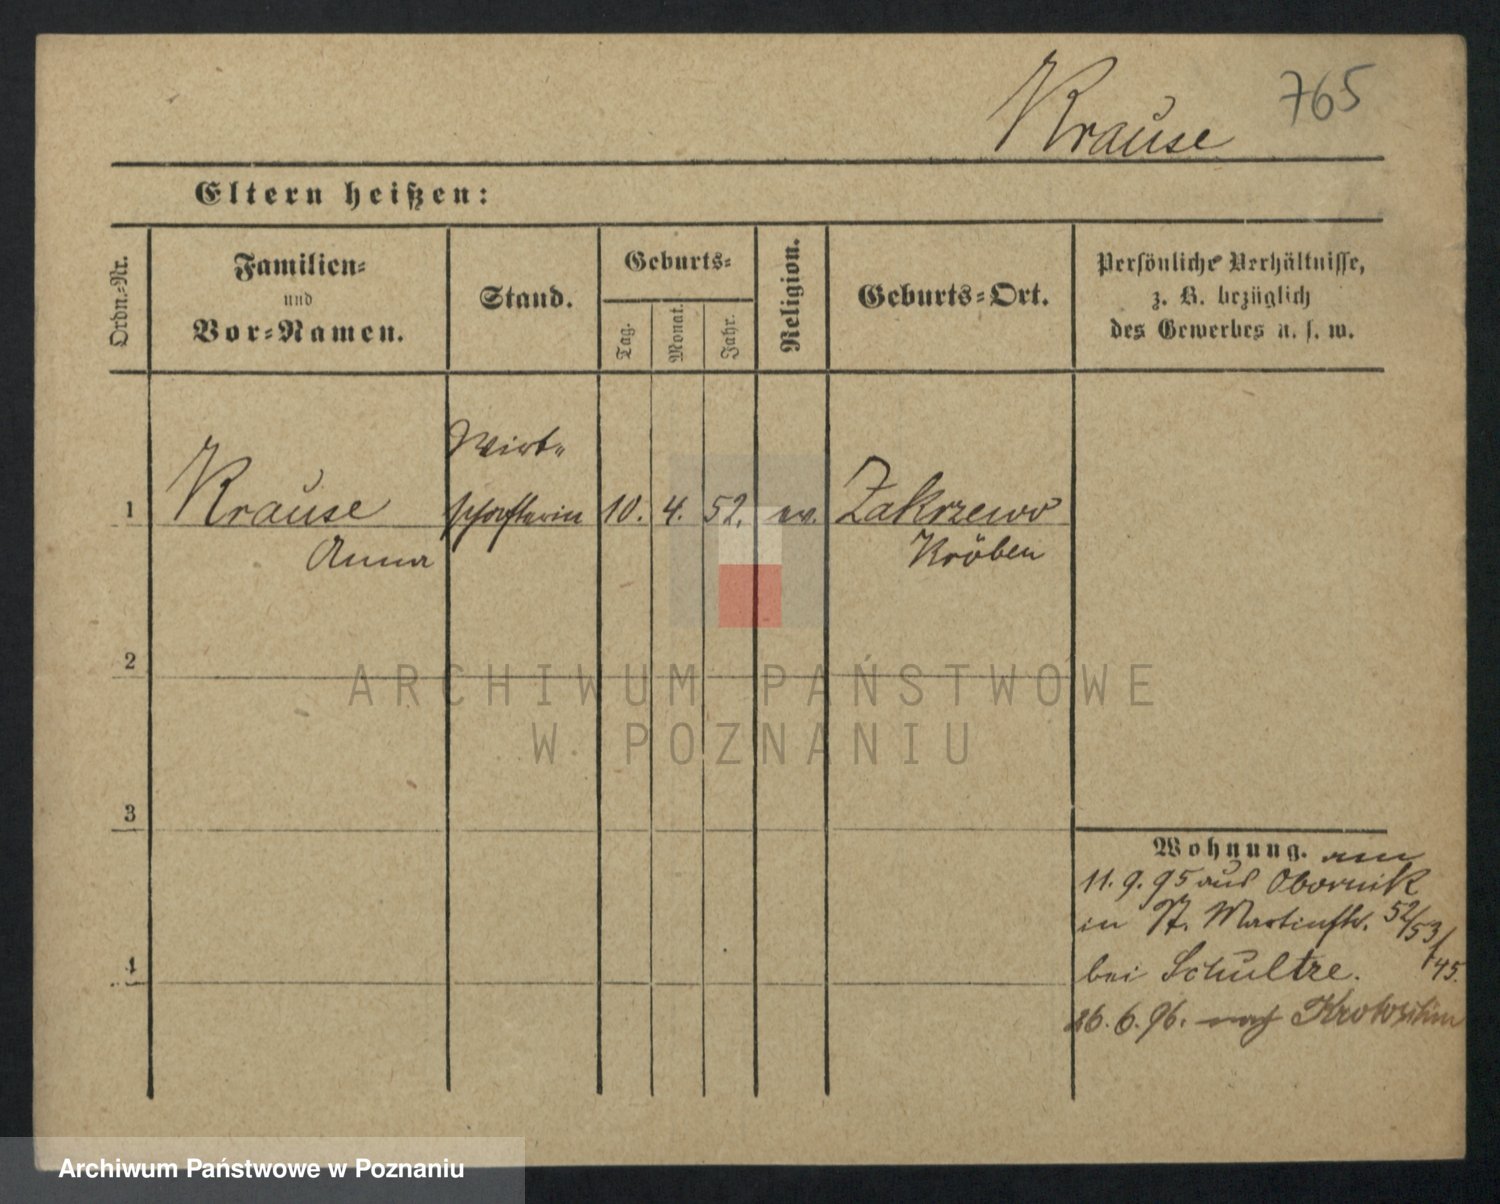 Krause 765
Eltern heißen:
Ordn.-Nr.
Familien-
und
Vor-Namen.
Stand.
Geburts-
Tag.
Monat.
Jahr.
Religion.
Geburts-Ort.
Persönliche Verhältnisse,
z. B. bezüglich
des Gewerbes u. s. w.
Wirt-
1 Krause schafterin 10. 4. 52. ev. Zakrzewo
Anna Kröben
2
ARCHIWUM PAŃSTWOWE
W POZNANIU
3
Wohnung. am
11. 9. 95 aus Obornik
in St. Martinstr. 52/53
bei Schultze. 45.
4
26. 6. 96. nach Krotoschin
Archiwum Państwowe w Poznaniu